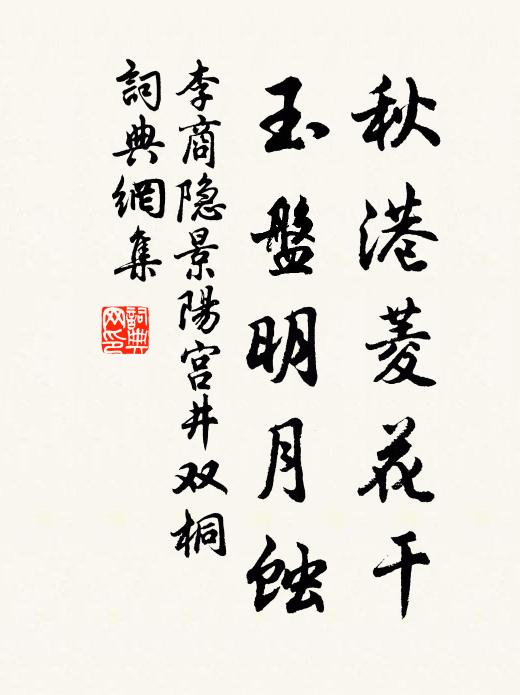 秋港菱花干
玉盤明月蝕
李商隐景陽宫井双桐
詞典網集
詞典网印